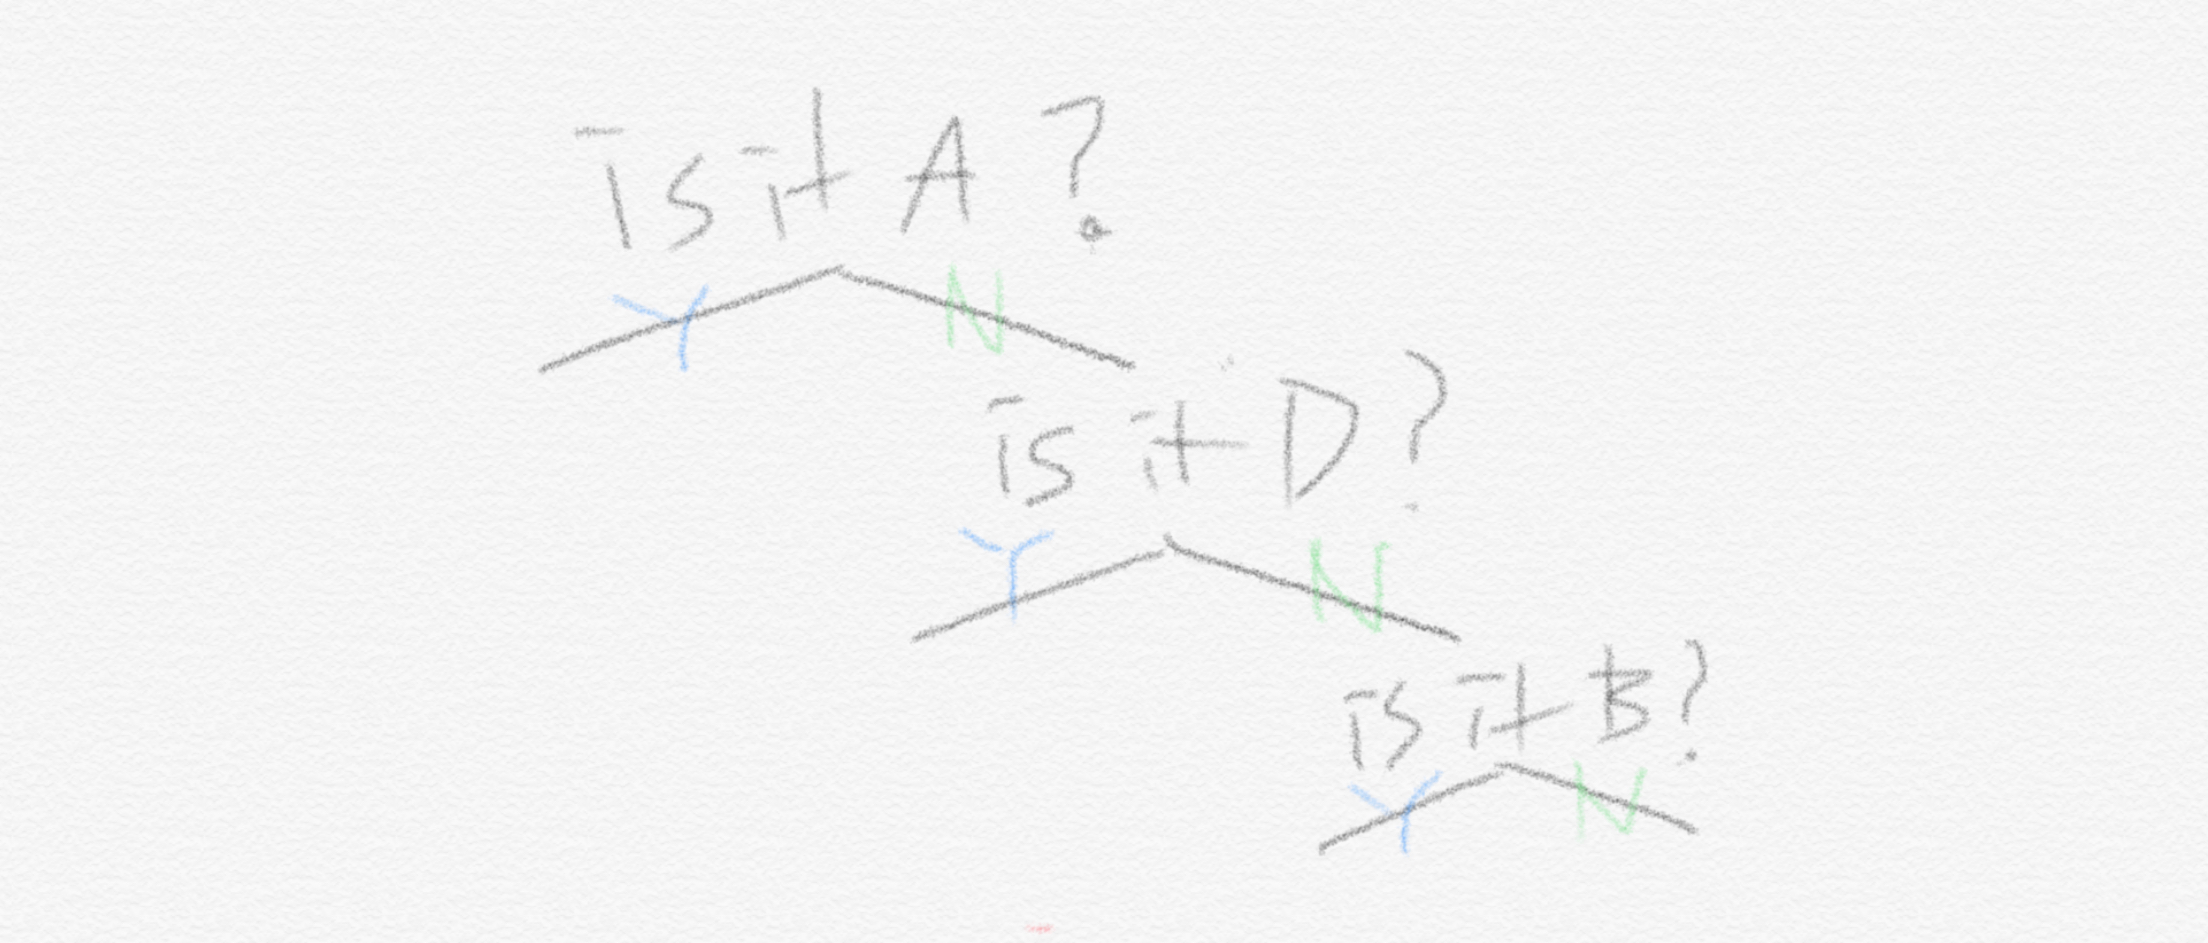 is it A?
Y N
is it D?
Y N
is it B?
Y N